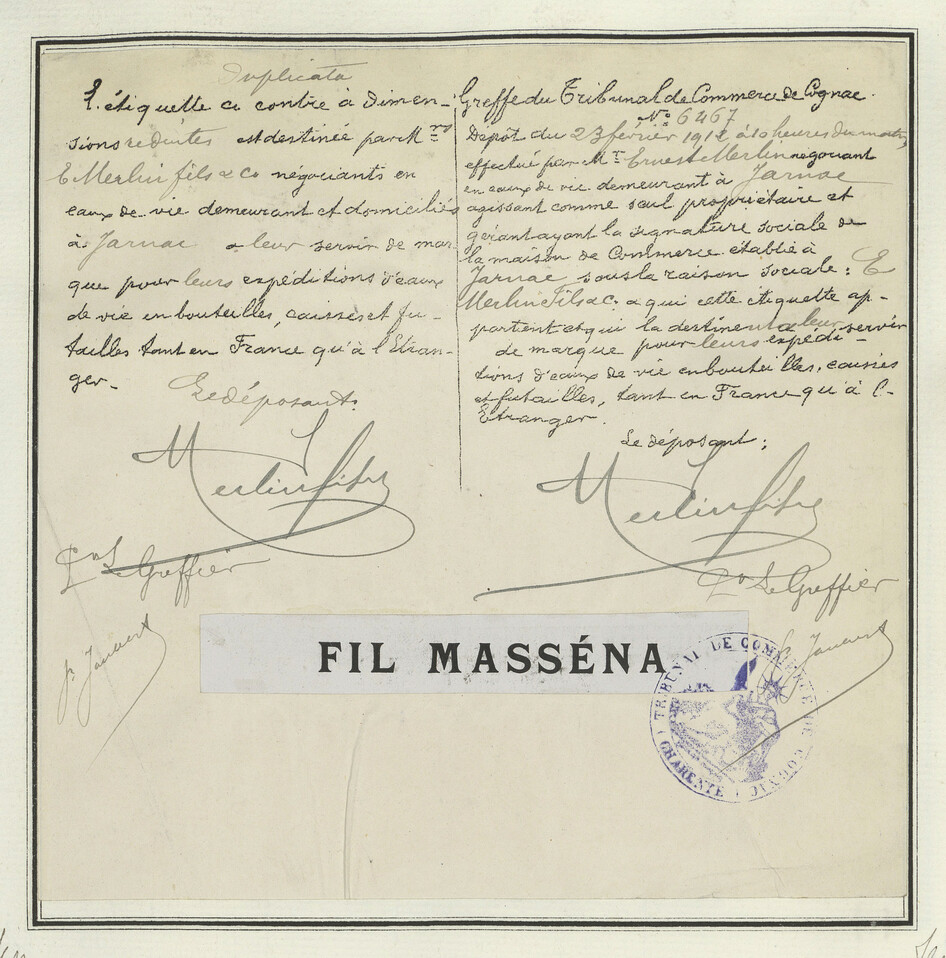 Duplicata
L'étiquette ci contre à dimen-
sions reduites est destinée par M.rs
E Merlin fils & Co négociants en
eaux de vie demeurant et domiciliés
à Jarnac a leur servir de mar-
que pour leurs expéditions d'eaux
de vie en bouteilles, caisses et fu-
tailles tant en France qu'à l'Etran-
ger.
Le déposant:
Merlin fils
Le Greffier
Greffe du Tribunal de Commerce de Cognac.
N° 6467
Depôt du 23 février 1912 à 10 heures du matin,
effectué par Mr. Ernest Merlin négociant
en eaux de vie demeurant à Jarnac
agissant comme seul propriétaire et
gérant ayant la signature sociale de
la maison de Commerce établie à
Jarnac sous la raison sociale: E
Merlin Fils & C. a qui cette étiquette ap-
partient et qui la destinent a leur servir
de marque pour leurs expédi-
tions d'eaux de vie en bouteilles, caisses
et futailles, tant en France qu'à l'-
Etranger.
Le déposant;
Merlin fils
Le Greffier
FIL MASSÉNA
TRIBUNAL DE COMMERCE DE COGNAC
(CHARENTE)